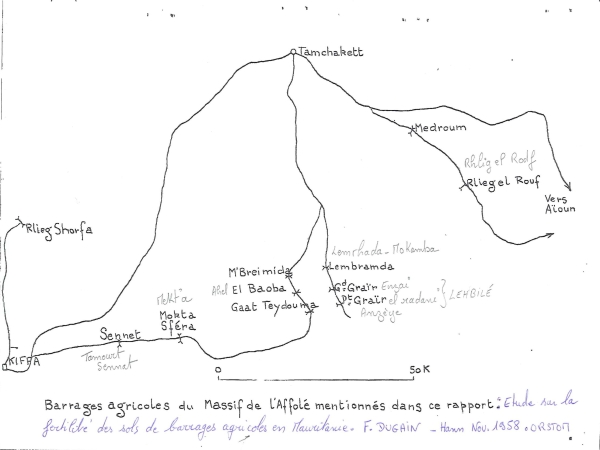 Tamchakett
Medroum
Rhlig el Rodf
Rlieg el Rouf
Vers
Aïoun
Rlieg Shorfa
Lemrhada - Mokamba
Lembramda
M'Breimida
Abel El Baoba
Gd Graïr Emjai
Pt Graïr el radani } LEHBILÉ
Gaat Teydouma
Mokt'a
Mokta
Sféra
Sennet
Tamourt
Sennat
KIFFA
0 50K
Barrages agricoles du Massif de l'Affolé mentionnés dans ce rapport : Etude sur la
fertilité des sols de barrages agricoles en Mauritanie. F. DUGAIN - Hann Nov. 1958. ORSTOM